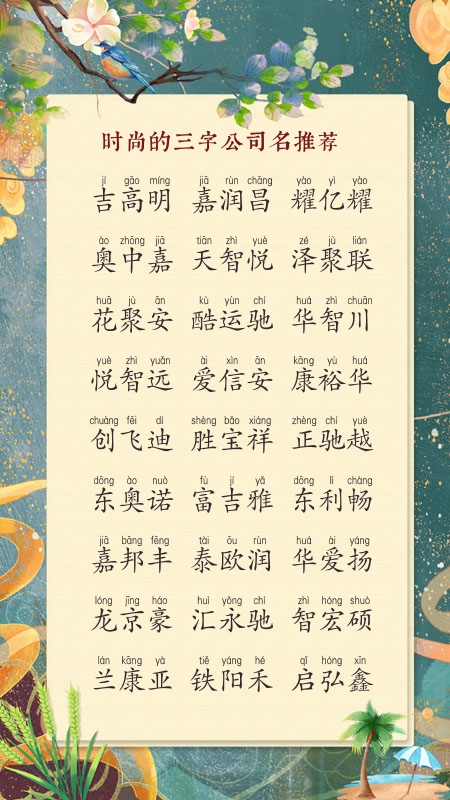 时尚的三字公司名推荐
jí gāo míng jiā rùn chāng yào yì yào
吉高明 嘉润昌 耀亿耀
ào zhōng jiā tiān zhì yuè zé jù lián
奥中嘉 天智悦 泽聚联
huā jù ān kù yùn chí huá zhì chuān
花聚安 酷运驰 华智川
yuè zhì yuǎn ài xìn ān kāng yù huá
悦智远 爱信安 康裕华
chuàng fēi dí shèng bǎo xiáng zhèng chí yuè
创飞迪 胜宝祥 正驰越
dōng ào nuò fù jí yǎ dōng lì chàng
东奥诺 富吉雅 东利畅
jiā bāng fēng tài ōu rùn huá ài yáng
嘉邦丰 泰欧润 华爱扬
lóng jīng háo huì yǒng chí zhì hóng shuò
龙京豪 汇永驰 智宏硕
lán kāng yà tiě yáng hé qǐ hóng xīn
兰康亚 铁阳禾 启弘鑫